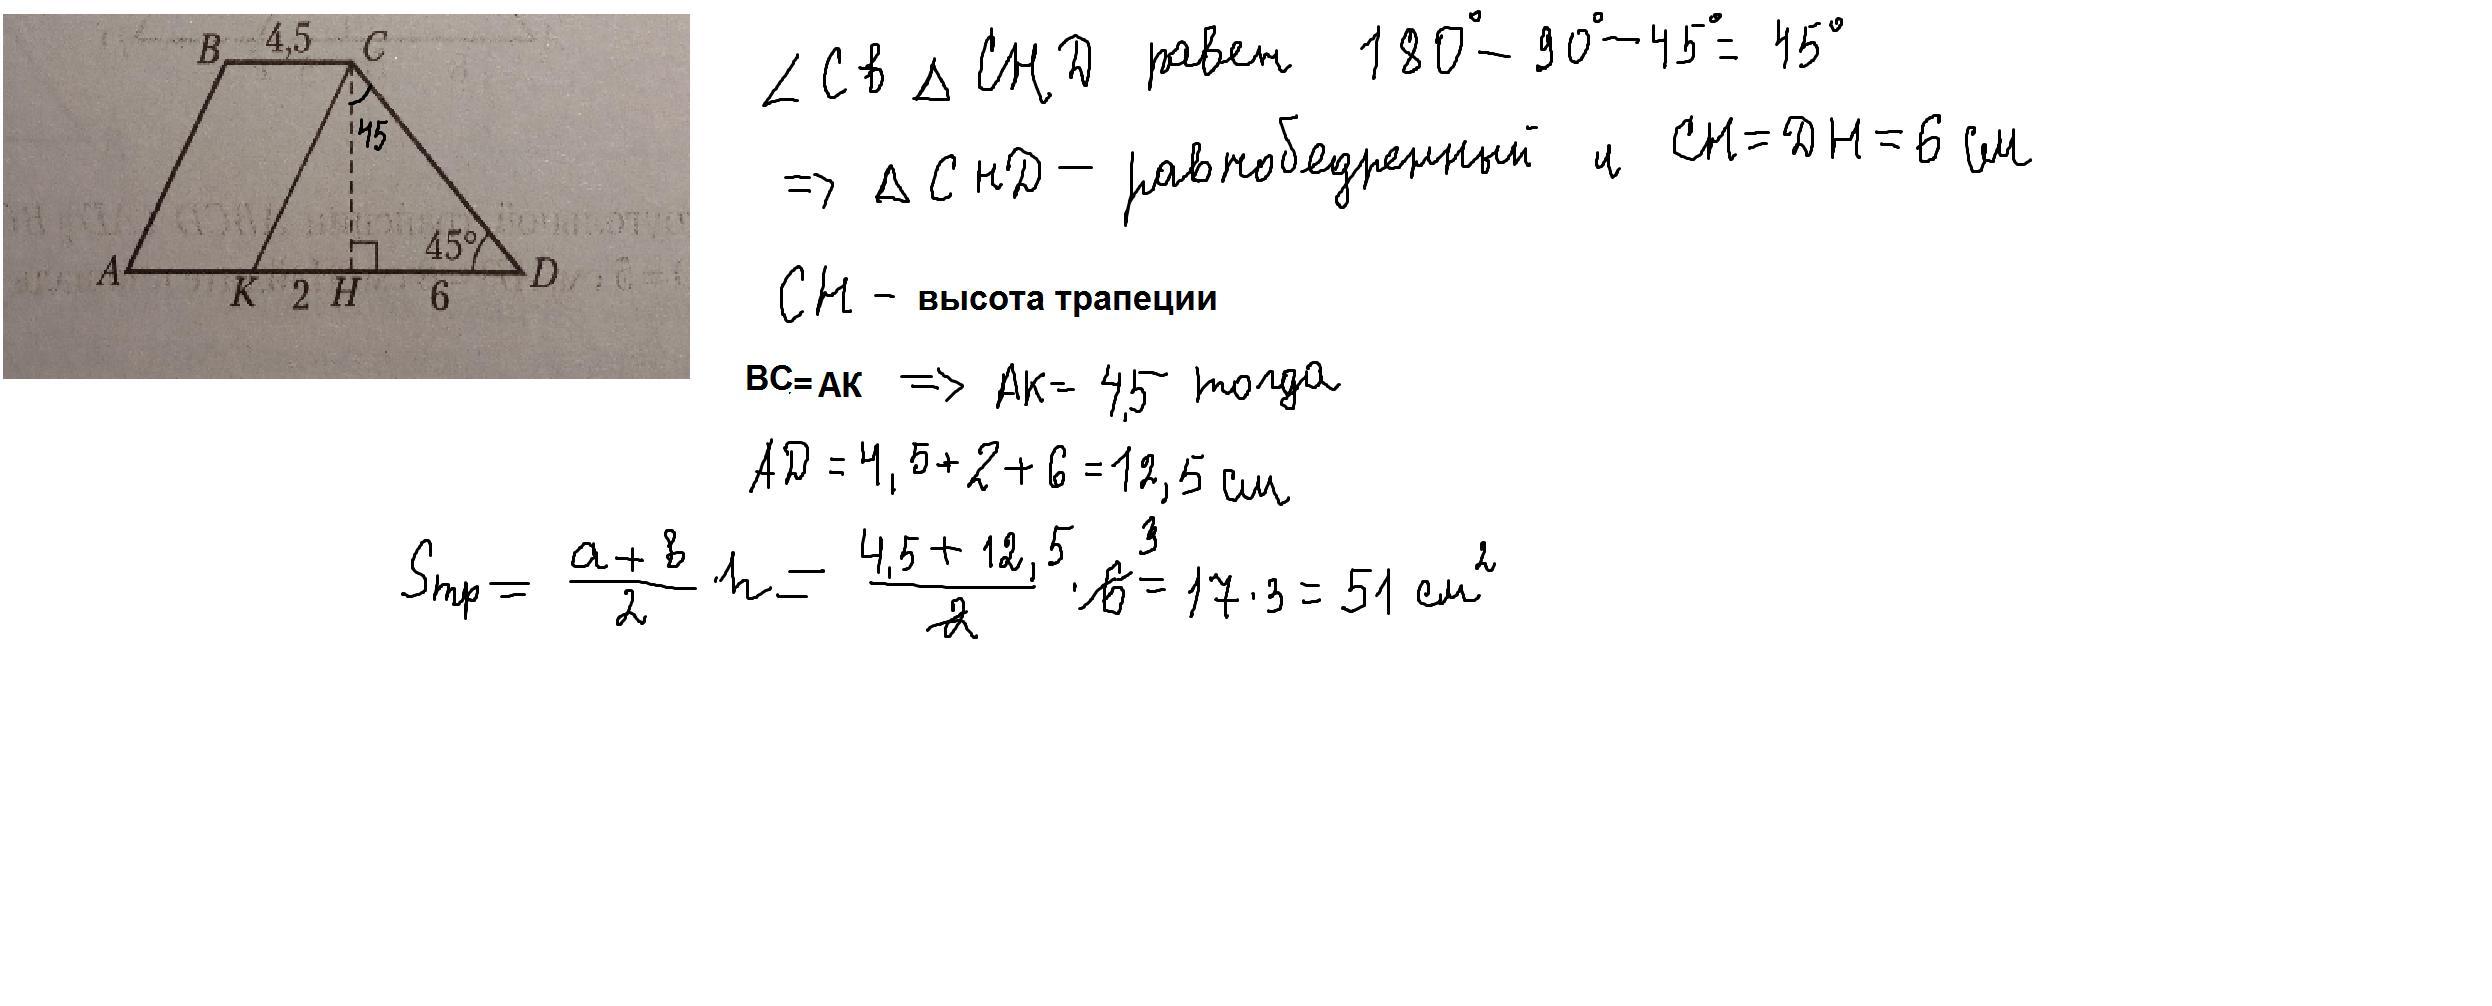 B 4,5 C
45
45°
A K 2 H 6 D
∠C в △ CHD равен 180° − 90° − 45° = 45°
=> △ CHD − равнобедренный и CH = DH = 6 см
CH − высота трапеции
BC = AK => AK = 4,5 тогда
AD = 4,5 + 2 + 6 = 12,5 см
Sтр = a + b / 2 · h = 4,5 + 12,5 / 2 · 6 3 = 17 · 3 = 51 см²